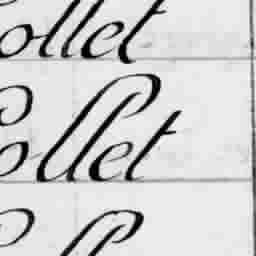 ollet
ollet